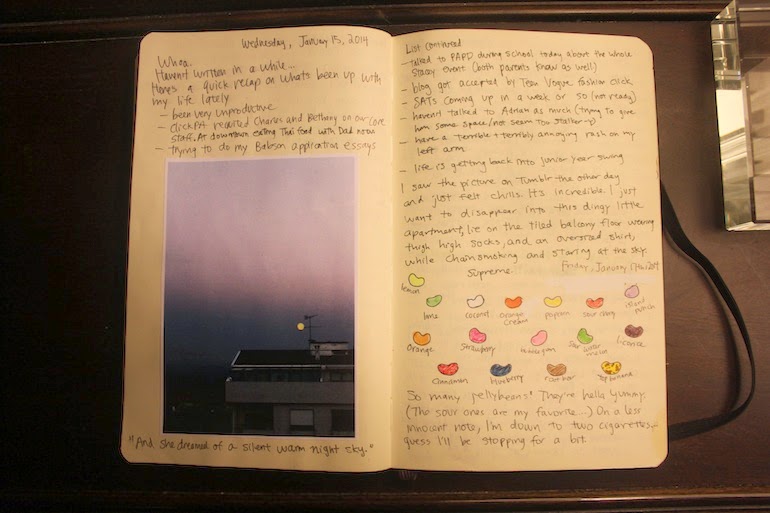 Wednesday, January 15, 2014
Whoa.
Haven't written in a while...
Here's a quick recap on whats been up with
my life lately
- been very unproductive
- ClickPA recruited Charles and Bethany on our core
staff. At downtown eating Thai food with Dad now
- trying to do my Babson application essays
"And she dreamed of a silent warm night sky."
List continued
- talked to PAPD during school today about the whole
Stacey event (both parents know as well!)
- blog got accepted by Teen Vogue fashion click
- SATs coming up in a week or so (not ready)
- haven't talked to Adrian as much (trying to give
him some space/not seem too stalker-y)
- have a terrible + terribly annoying rash on my
left arm
- life is getting back into junior year swing
I saw the picture on Tumblr the other day
and just felt chills. It's incredible. I just
want to disappear into this dingy little
apartment, lie on the tiled balcony floor wearing
thigh high socks, and an oversized shirt,
while chainsmoking and staring at the sky.
Supreme.
Friday, January 17th, 2014
lemon
lime
coconut
orange cream
popcorn
sour cherry
island punch
orange
strawberry
sour water melon
licorice
cinnamon
blueberry
root beer
top banana
So many jellybeans! They're hella yummy.
(The sour ones are my favorite...) On a less
innocent note, I'm down to two cigarettes...
guess I'll be stopping for a bit.